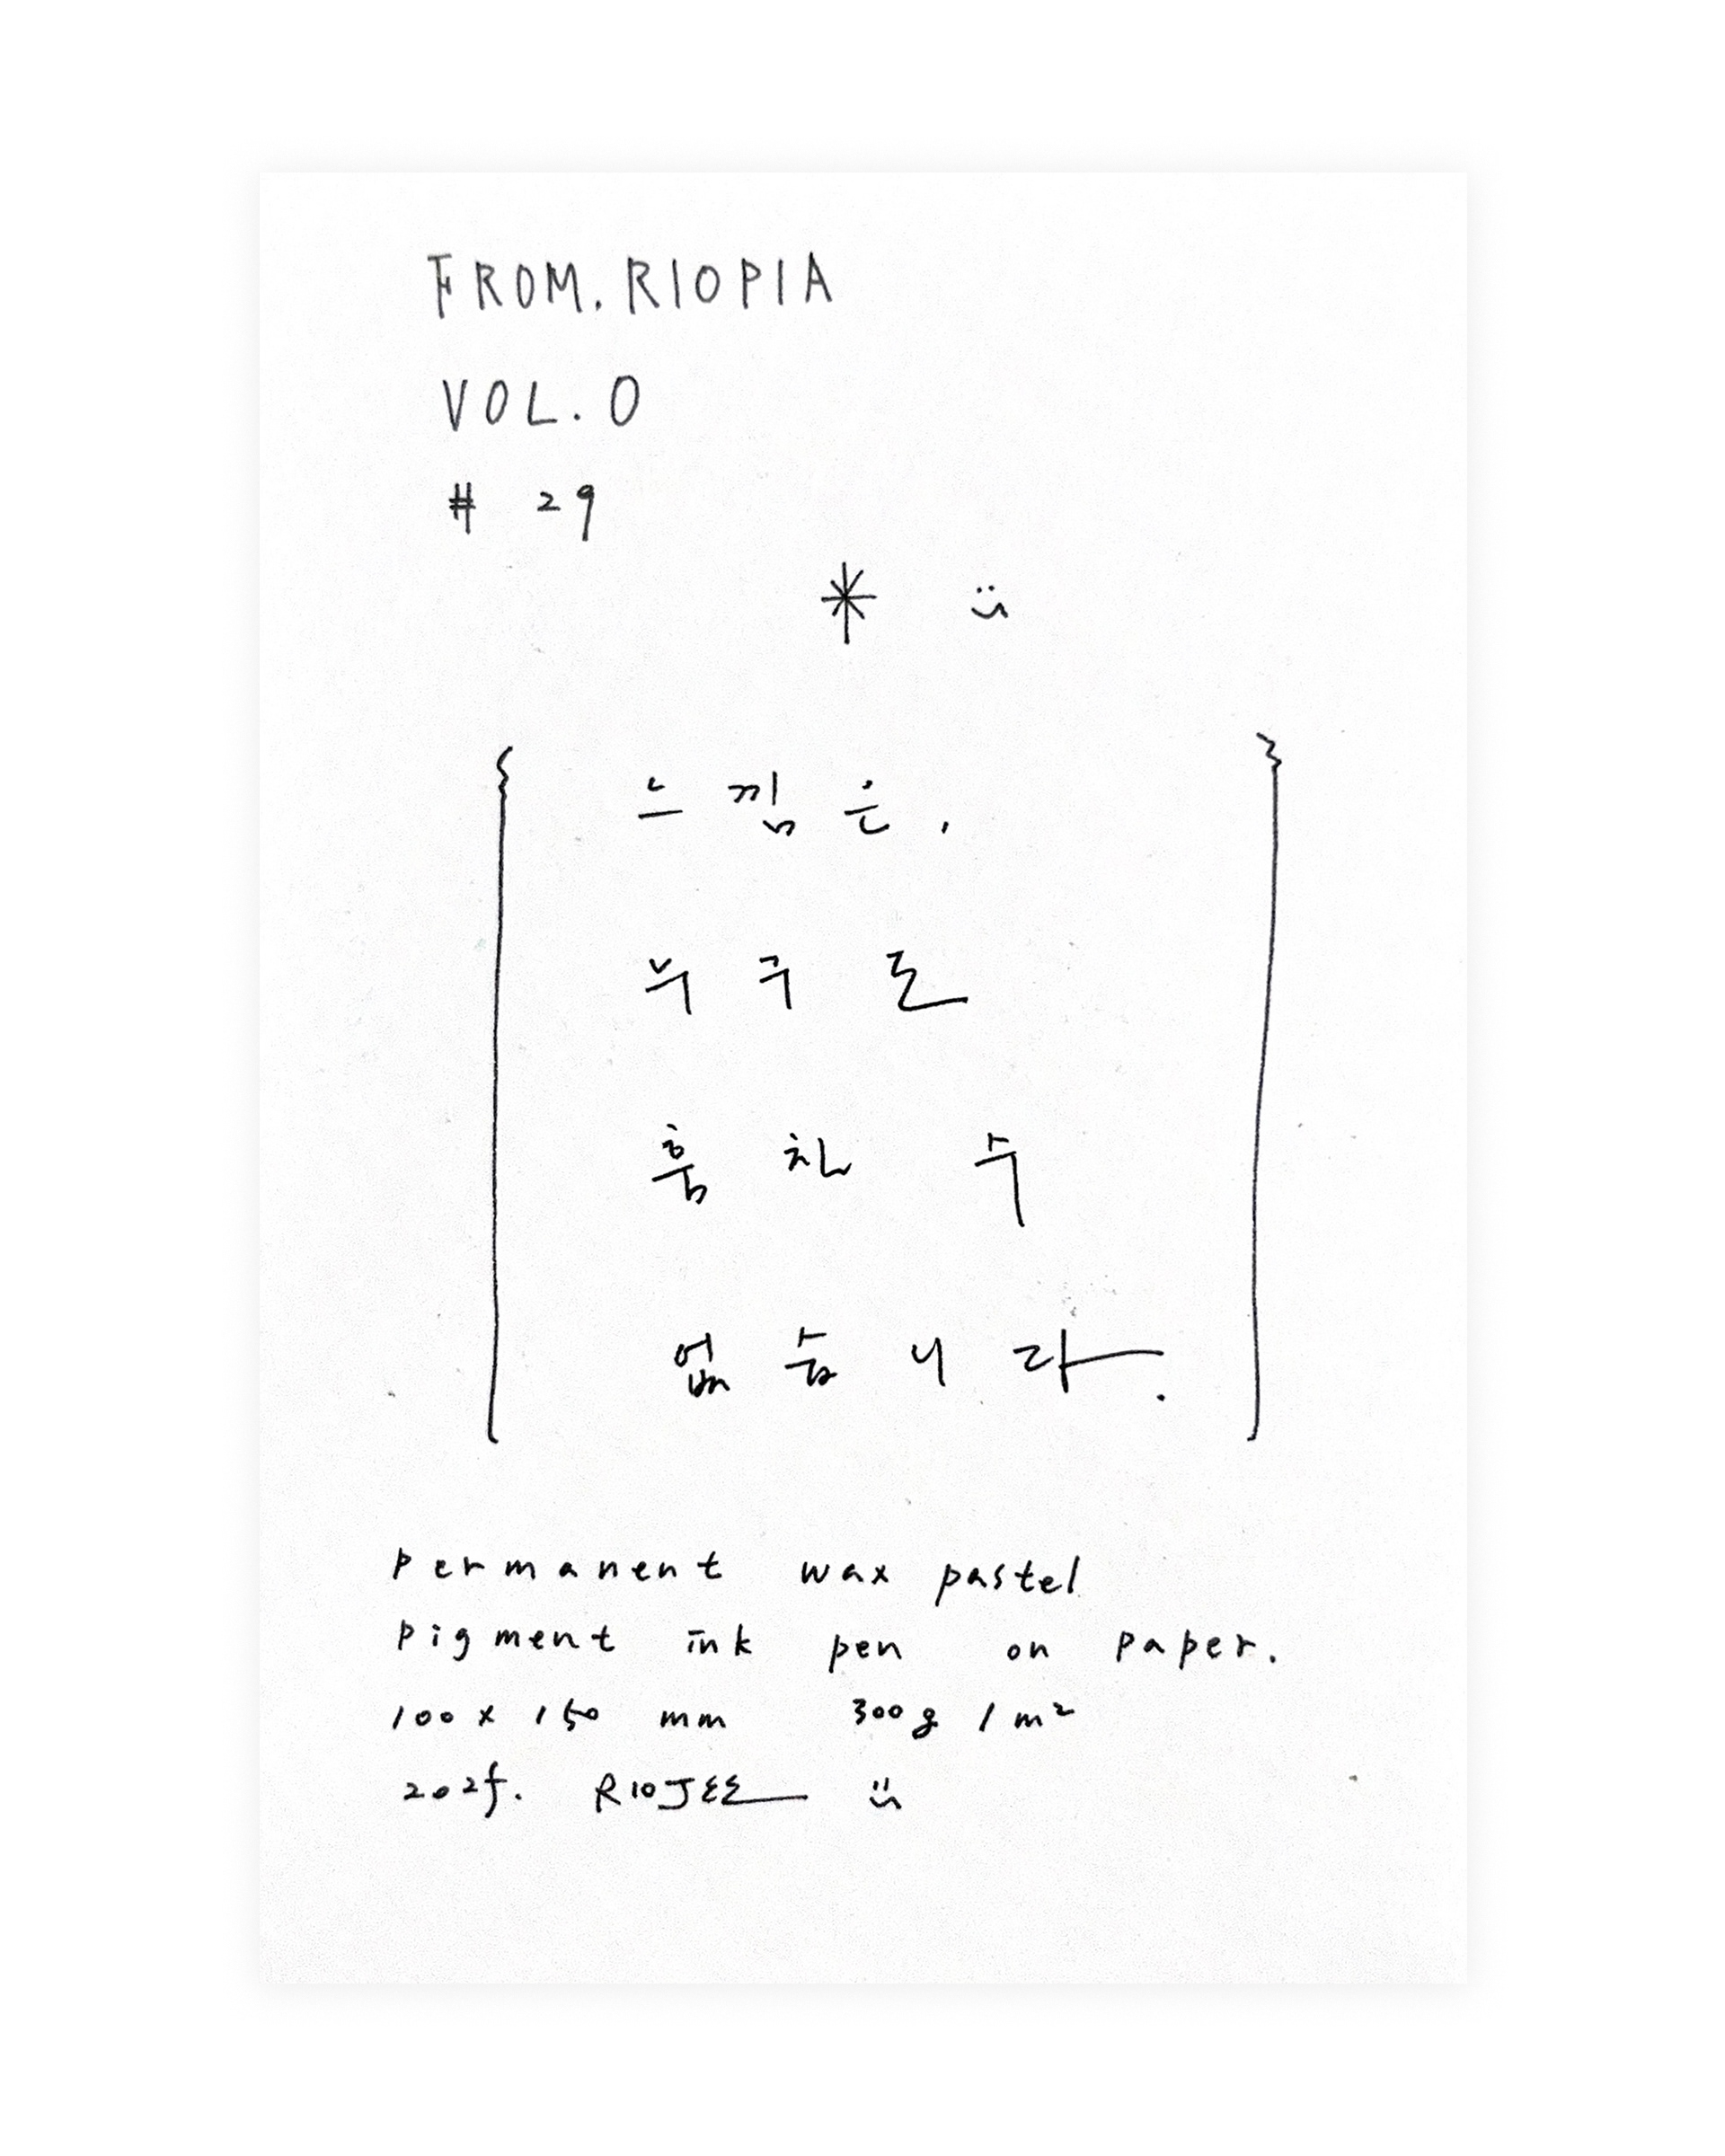 FROM. RIOPIA
VOL. 0
# 29
* :)
느낌은,
누구도
훔칠 수
없습니다.
permanent wax pastel
pigment ink pen on paper.
100 x 150 mm 300g / m²
2025. RIOJEE :)